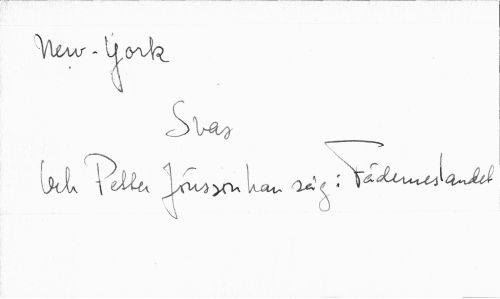 New-York
Svar
Och Petter Jönsson han säg: Fäderneslandet